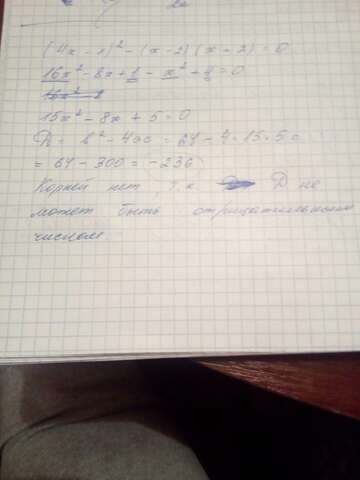 (4x - 1)² - (x - 2)(x + 2) = 0
16x² - 8x + 1 - x² + 4 = 0
16x² - 8
15x² - 8x + 5 = 0
D = b² - 4ac = 64 - 4 · 15 · 5 =
= 64 - 300 = -236
Корней нет, т.к. D не
может быть отрицательным
числом.